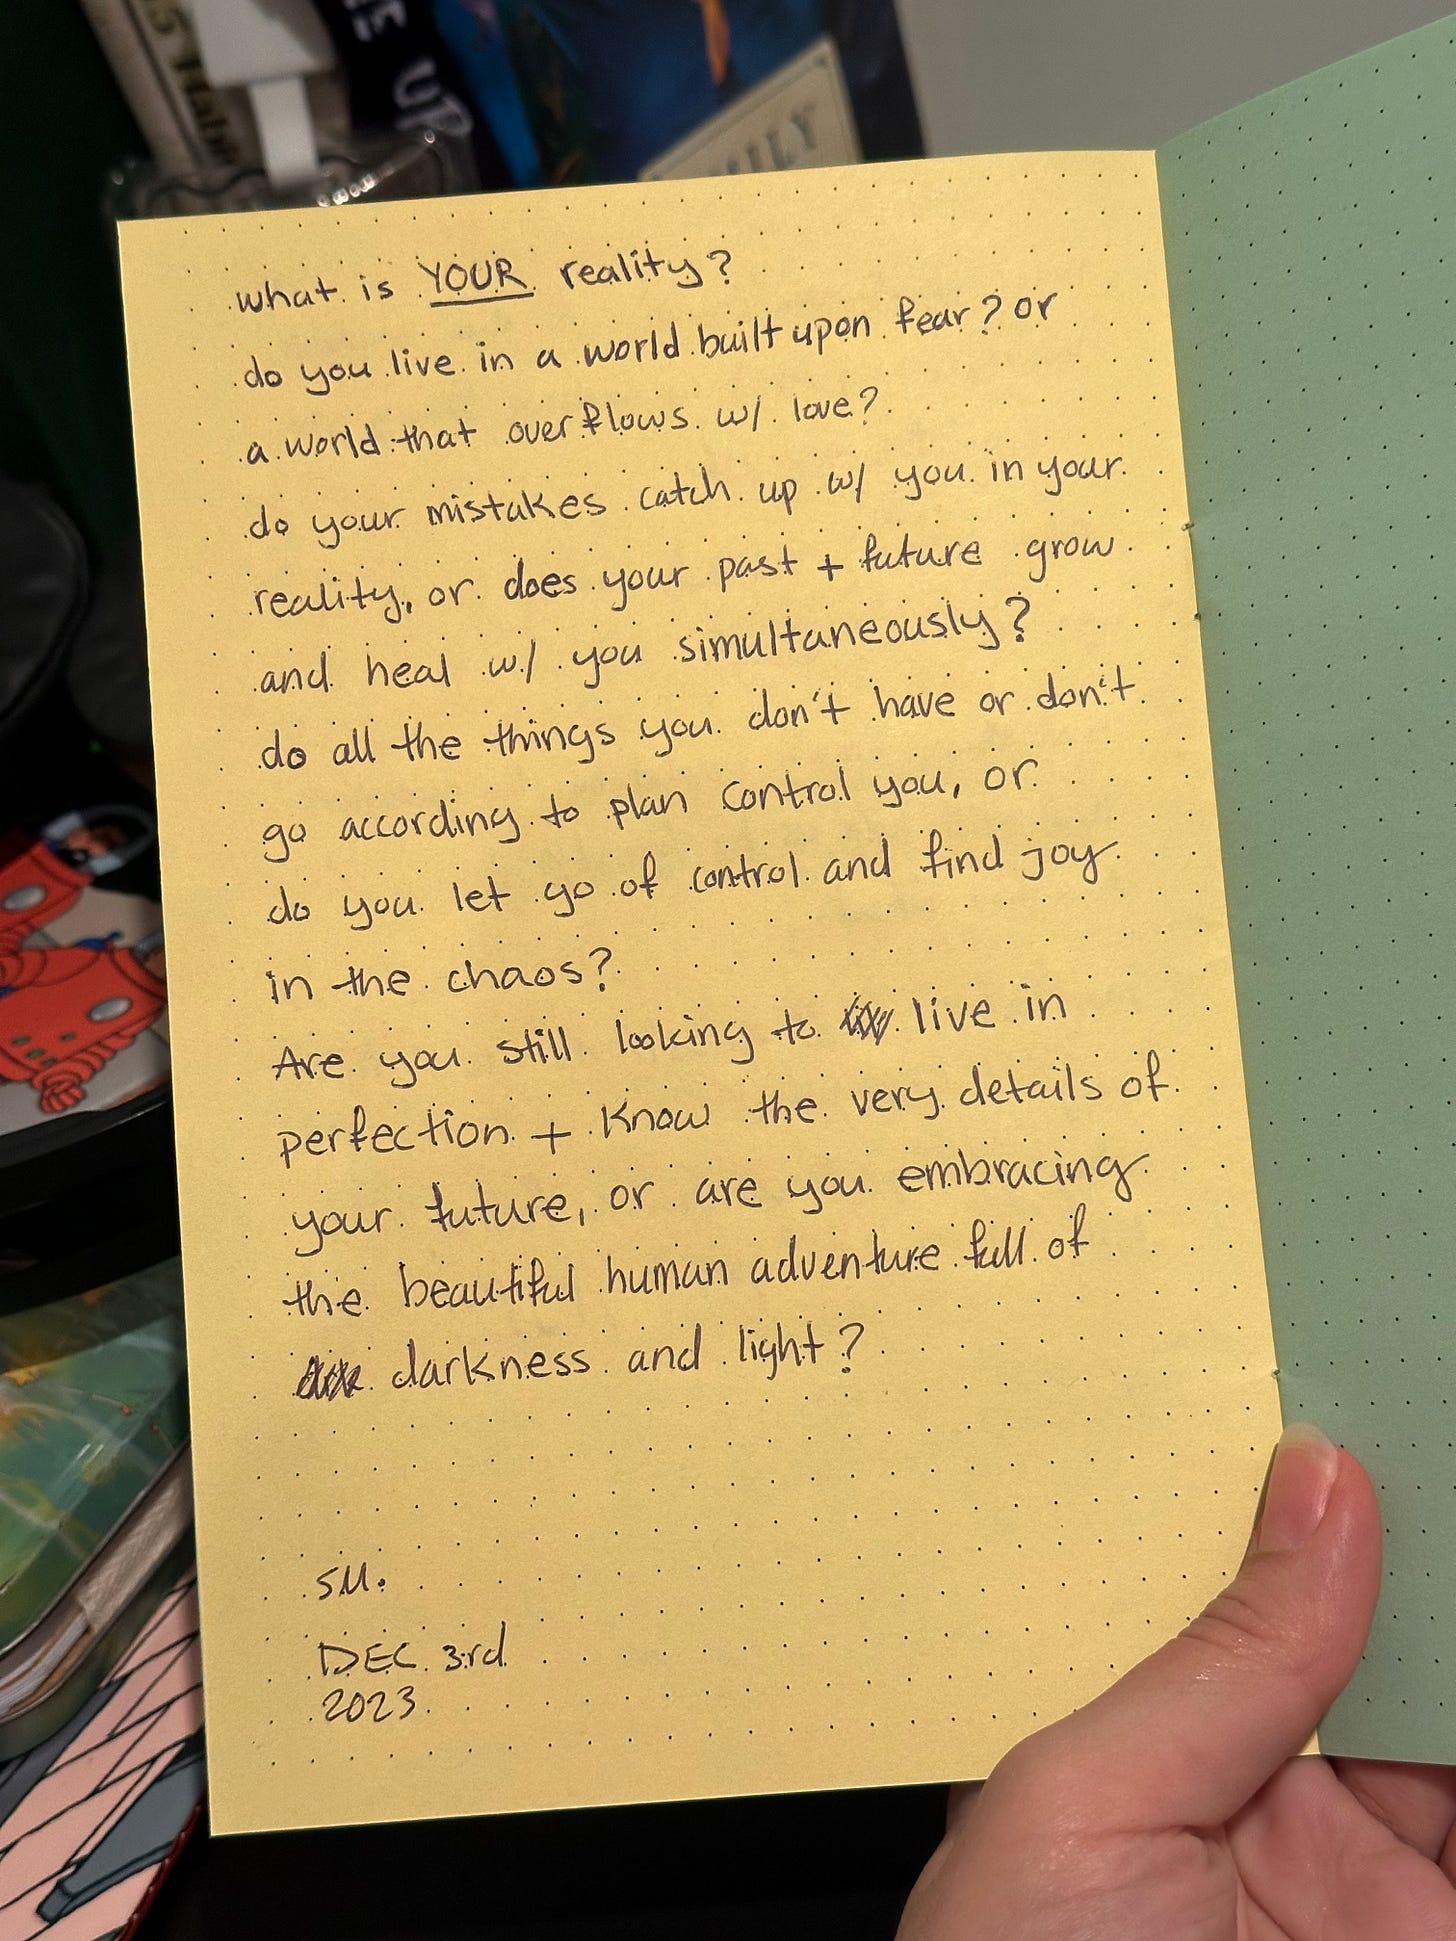 UP
what is YOUR reality?
do you live in a world built upon fear? or
a world that overflows w/ love?
do your mistakes catch up w/ you in your
reality, or does your past + future grow
and heal w/ you simultaneously?
do all the things you don't have or don't
go according to plan control you, or
do you let go of control and find joy
in the chaos?
Are you still looking to live in
perfection + know the very details of
your future, or are you embracing
the beautiful human adventure full of
darkness and light?
SM.
DEC 3rd
2023